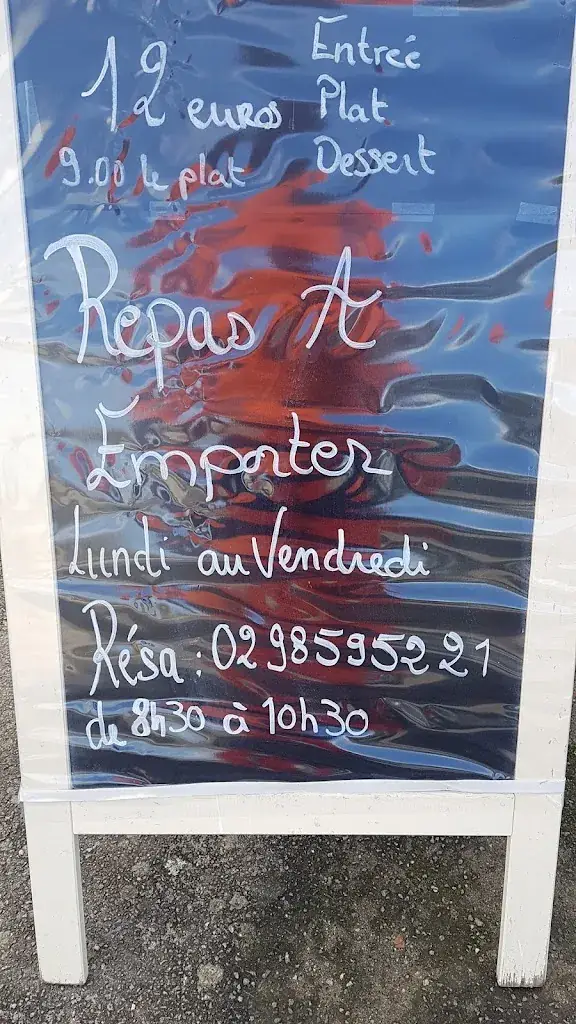 12 euros
9.00 le plat
Entrée
Plat
Dessert
Repas A
Emporter
Lundi au Vendredi
Résa : 02 98 59 52 21
de 8h30 à 10h30